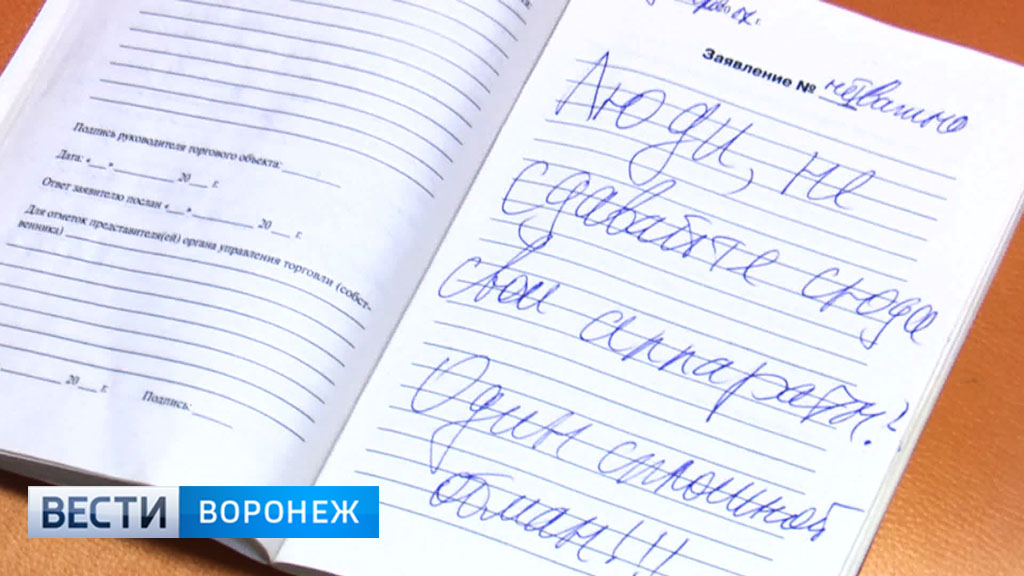 Подпись руководителя торгового объекта:
Дата: «__»________ 20__ г.
Ответ заявителю послан «__»________ 20__ г.
Для отметок представителя(ей) органа управления торговли (собст-
венника)
20__ г.
Подпись:
Заявление №
Люди, не
сдавайте сюда
свои аппараты!
Один сплошной
обман!!!
ВЕСТИ ВОРОНЕЖ